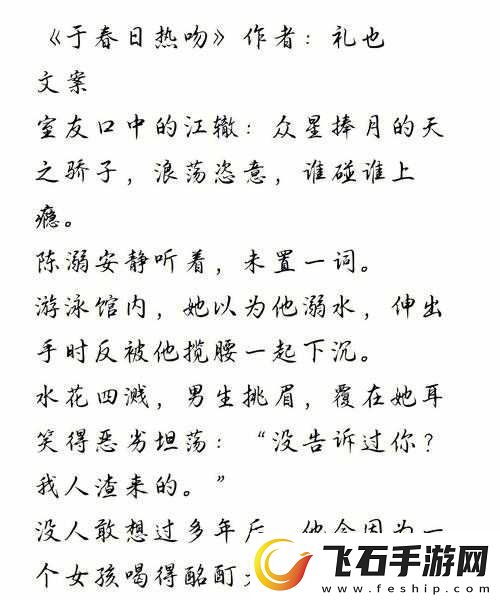 《于春日热吻》作者：礼也
文案
室友口中的江辙：众星捧月的天
之骄子，浪荡恣意，谁碰谁上
瘾。
陈溺安静听着，未置一词。
游泳馆内，她以为他溺水，伸出
手时反被他揽腰一起下沉。
水花四溅，男生挑眉，覆在她耳
笑得恶劣坦荡：“没告诉过你？
我人渣来的。”
没人敢想过多年后，他会因为一
个女孩喝得酩酊
飞石手游网
www.feship.com